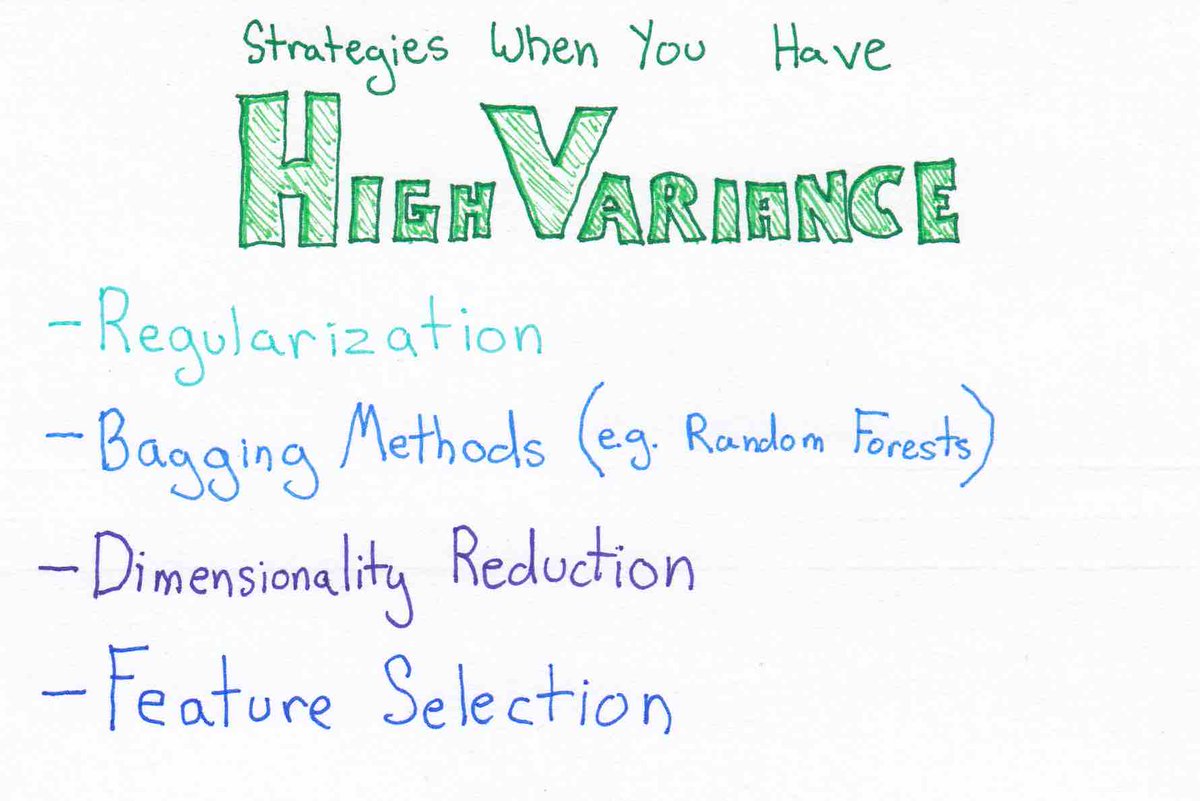 Strategies When You Have
HIGH VARIANCE
- Regularization
- Bagging Methods (e.g. Random Forests)
- Dimensionality Reduction
- Feature Selection